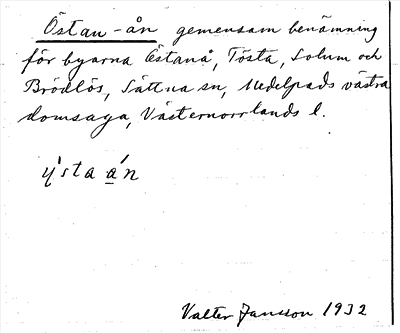 Östan-ån gemensam benämning
för byarna Östanå, Tösta, Solum och
Brödlös, Sättna sn, Medelpads västra
domsaga, Västernorrlands l.
ý'sta a̲´n
Valter Jansson 1932